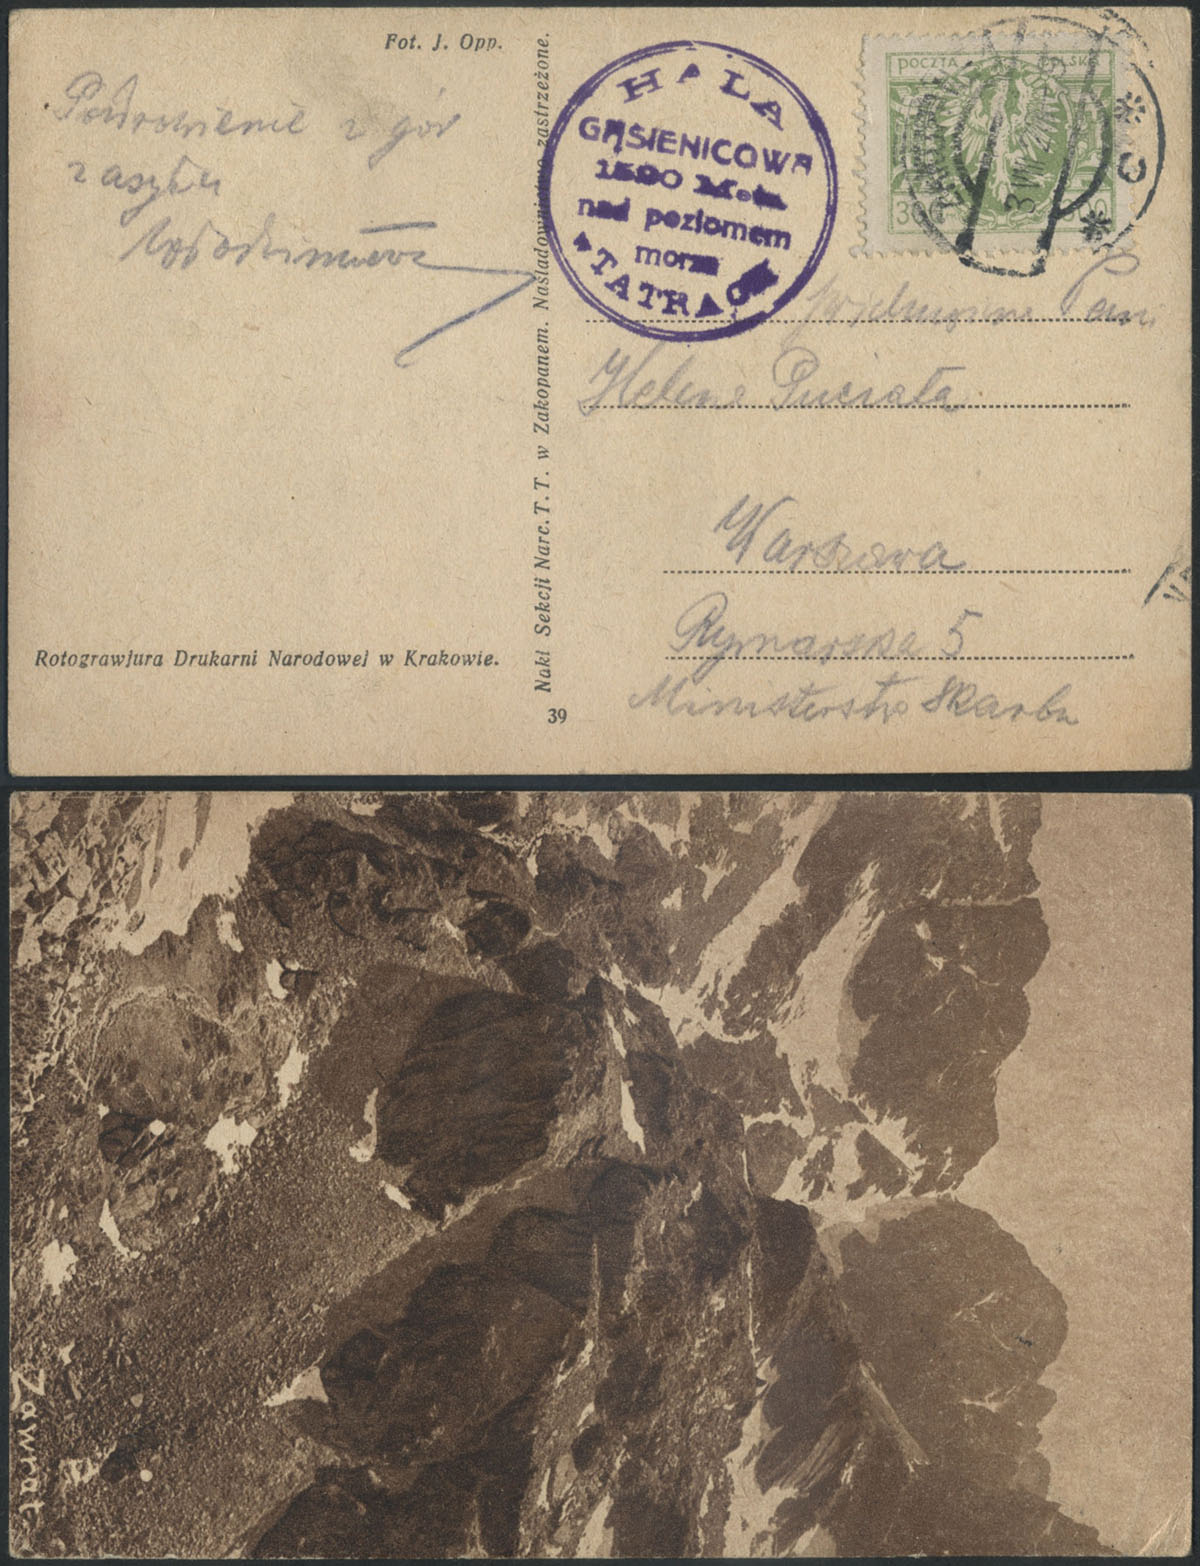 Fot. J. Opp.
Pozdrowienie z gór
zasyła
Włodzimierz
Rotograwjura Drukarni Narodowej w Krakowie.
Nakł Sekcji Narc. T. T. w Zakopanem. Naśladownictwo zastrzeżone.
39
HALA
GĄSIENICOWA
1500 M.
nad poziomem
morza
TATRACH
POCZTA POLSKA
300 300
ZAKOPANE
3 VII
* C *
Wielmożna Pani
Helena Puciata
Warszawa
Rymarska 5
Ministerstwo Skarbu
Zawrat